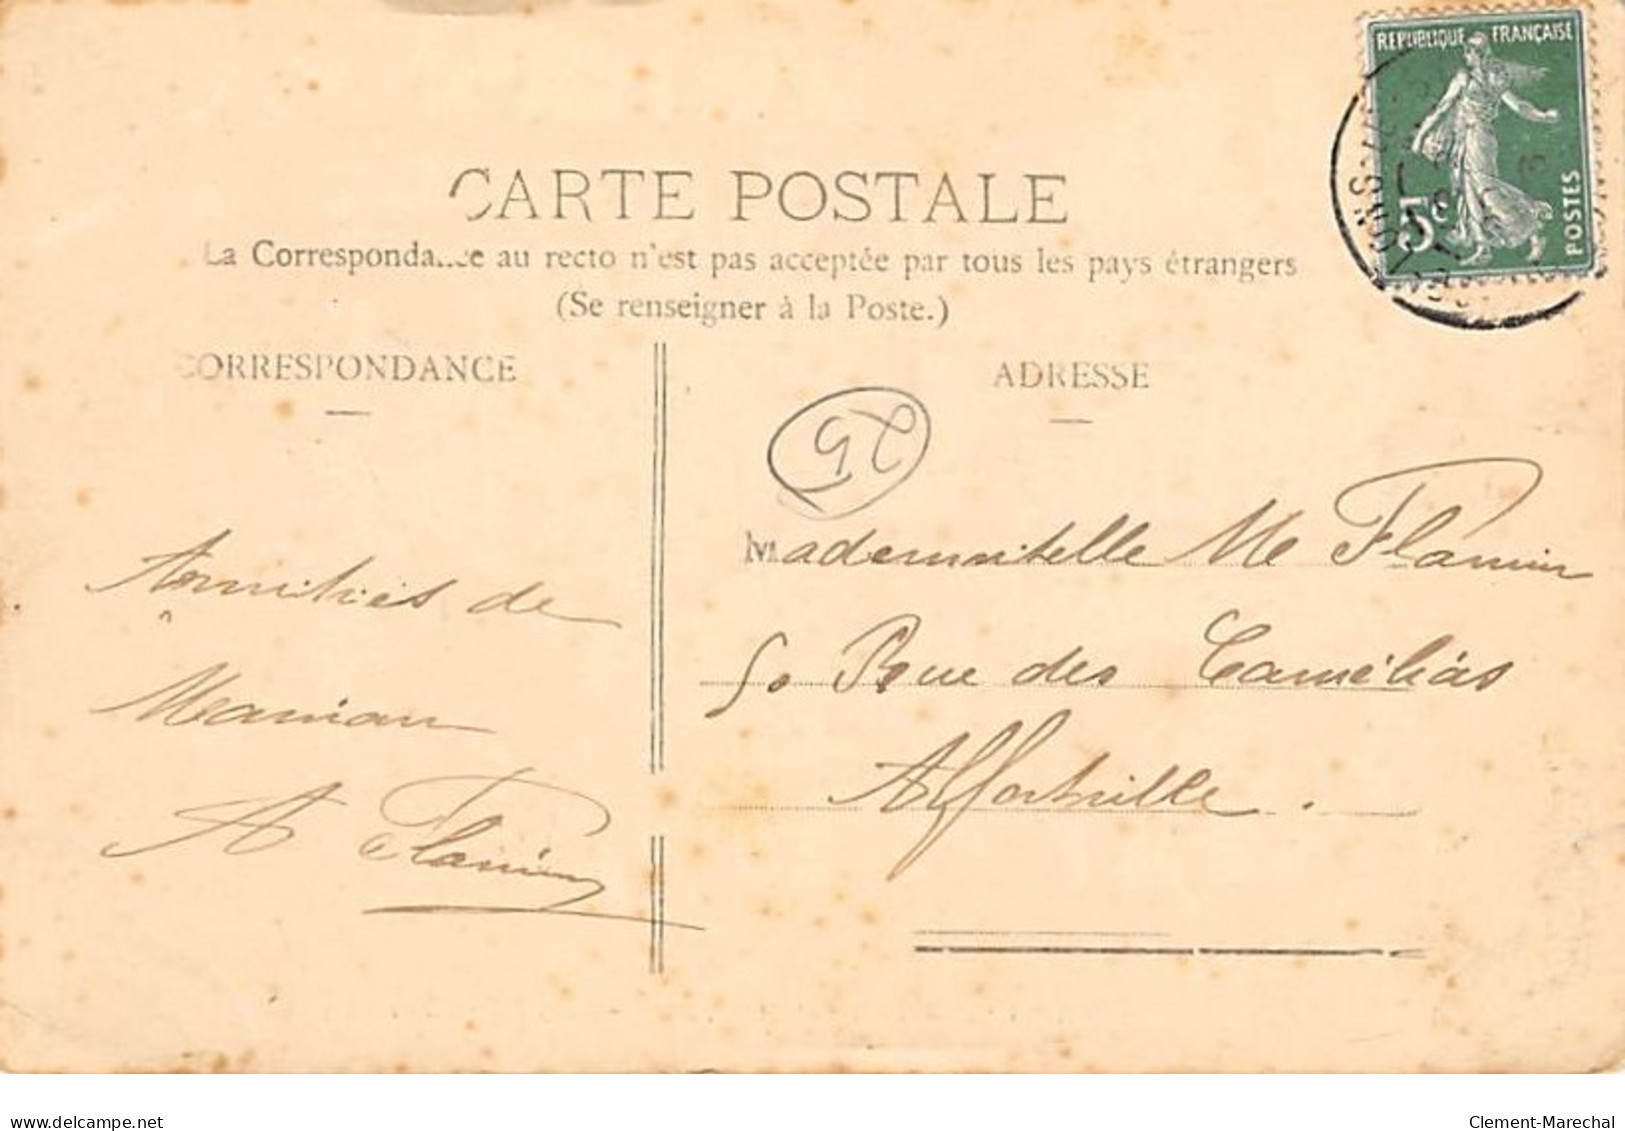 RÉPUBLIQUE FRANÇAISE
5c
POSTES
CARTE POSTALE
La Correspondance au recto n'est pas acceptée par tous les pays étrangers
(Se renseigner à la Poste.)
CORRESPONDANCE
ADRESSE
25
Amitiés de
Maman
A Flamin
Mademoiselle Me Flamin
50 Rue des Camélias
Alfortville.
www.delcampe.net
Clement-Marechal